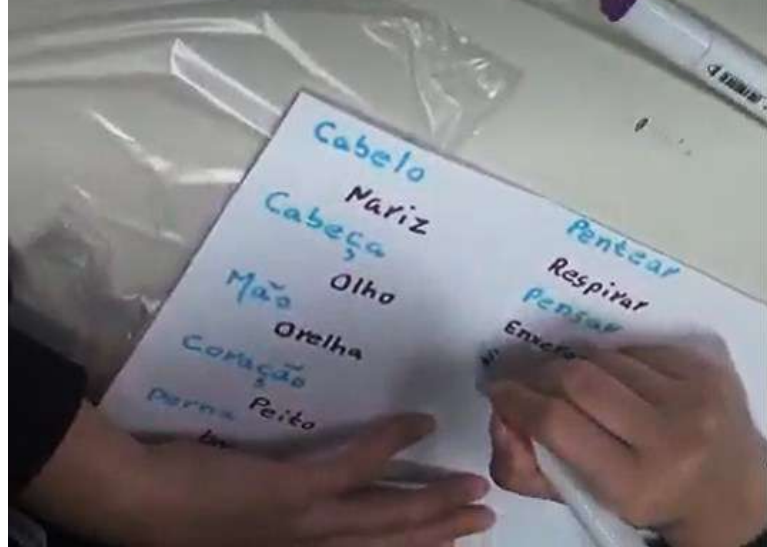 Cabelo
Nariz
Cabeça
Olho
Mão
Orelha
Coração
Peito
Perna
Pentear
Respirar
Pensar